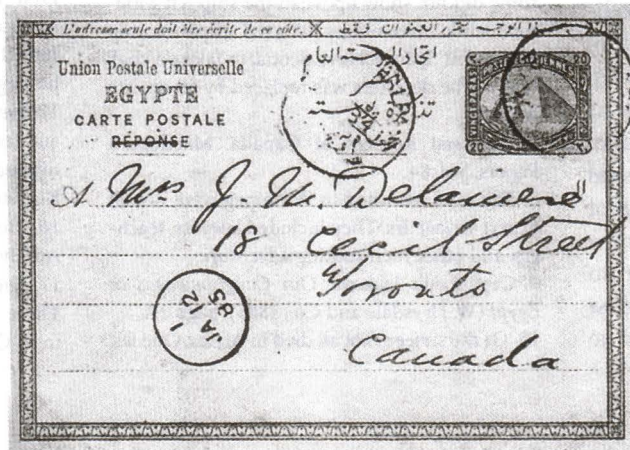 L'adresse seule doit être écrite de ce côté.
Union Postale Universelle
EGYPTE
CARTE POSTALE
RÉPONSE
اتحاد البوسته العام
20 20
20
Mrs J. M. Delamere
18 Cecil Street
Toronto
Canada
1
JA 12
85